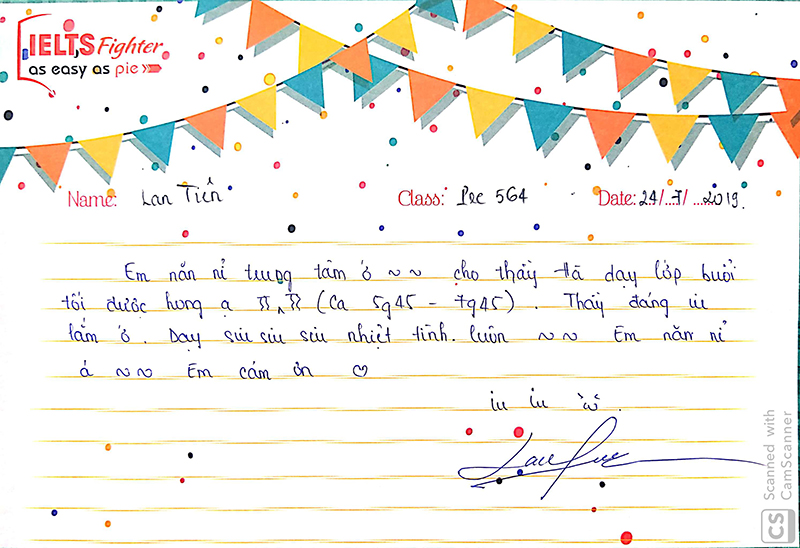 IELTS Fighter
as easy as pie
Name: Lan Tiến Class: Pec 564 Date: 24/.7/ ...2019.
Em năn nỉ trung tâm ớ ~ ~ cho thầy Hà dạy lớp buổi
tối được hong ạ ㅠ^ㅠ (Ca 5g45 - 7g45). Thầy đáng iu
lắm ớ. Dạy siu siu siu nhiệt tình. luôn ~ ~ Em năn nỉ
á ~ ~ Em cám ơn ♡
iu iu
Scanned with
CamScanner
CS